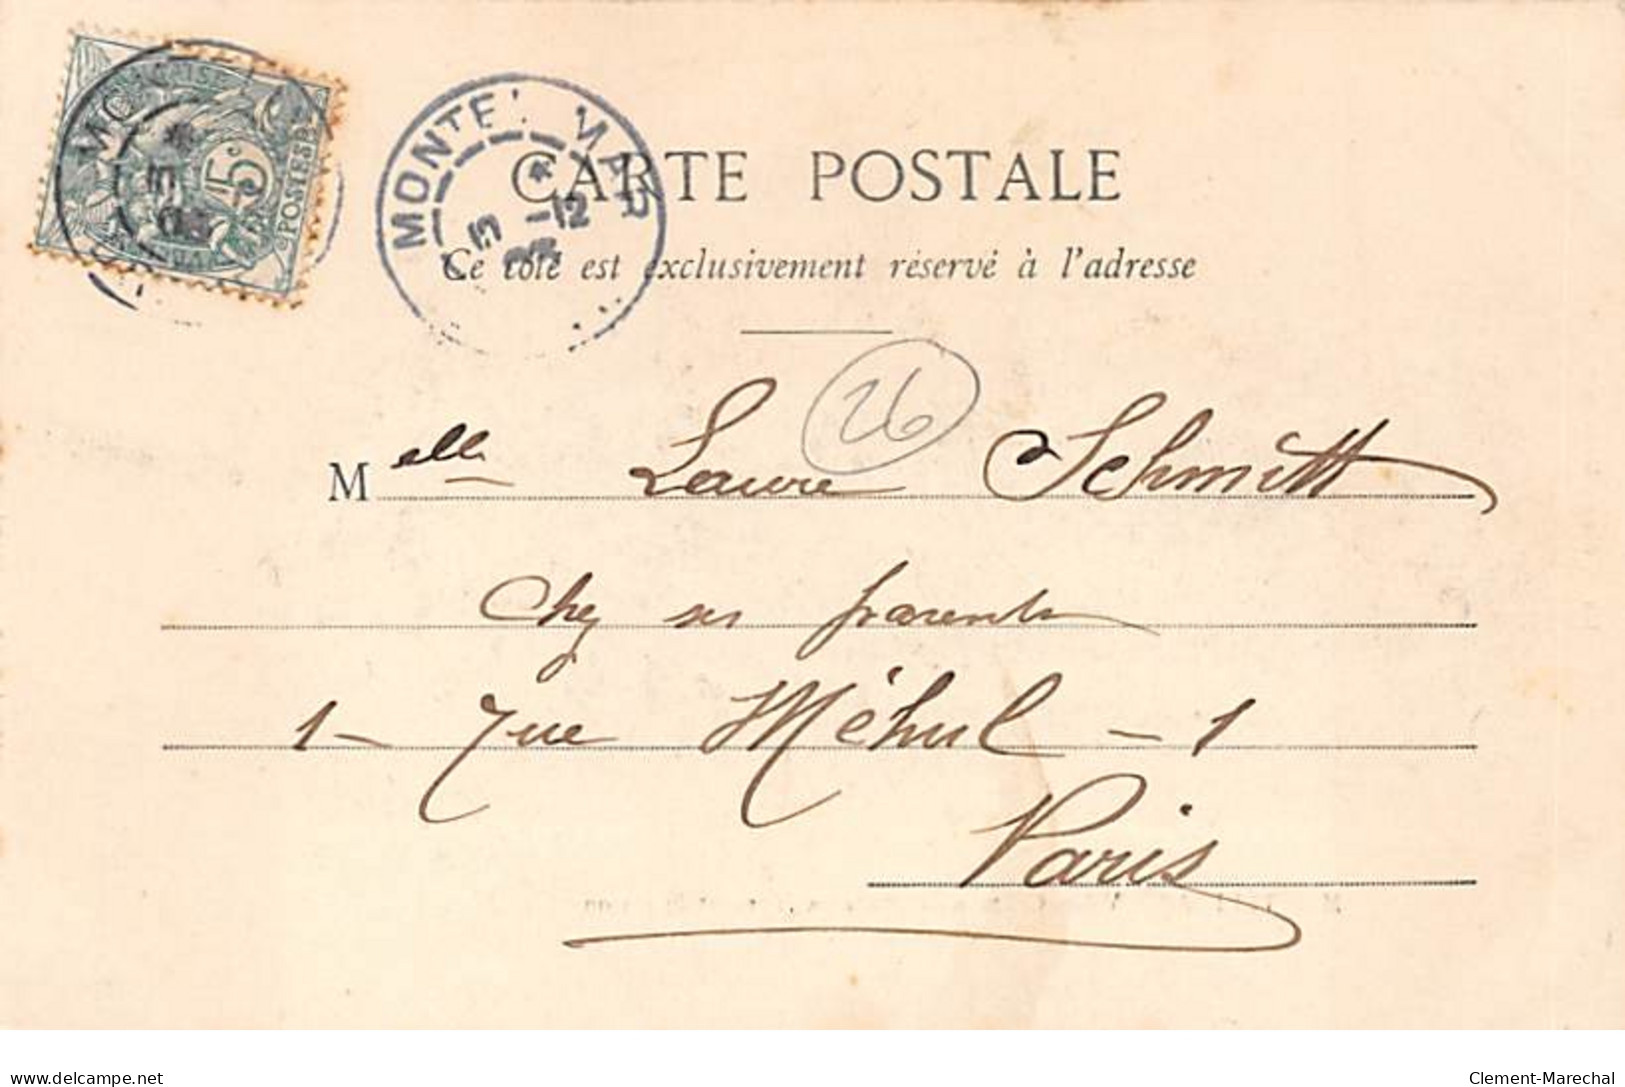 MONTE
-12
5c
POSTES
CARTE POSTALE
Ce côté est exclusivement réservé à l'adresse
26
Melle Laure Schmitt
Chez ses parents
1 - rue Méhul - 1
Paris
delcampe.net
Clement-Marechal